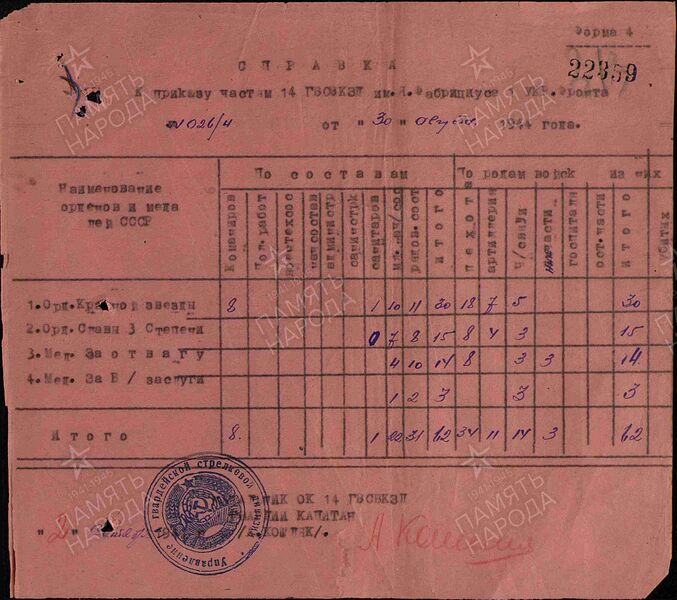 Форма 4
22859
СПРАВКА
К приказу частям 14 ГВСВКЗД им.Я.Фабрициуса 1 УКР.Фронта
№ 026/н от "30" августа 1944 года.
Наименование орденов и меда лей СССР
По составам
По родам войск
Из них
Командиров
Пол.работ
Начсостав
Админстр
санитаров
мл.нач/сос
рядов.сост
ИТОГО
пехота
артиллерия
Ч/связи
госпитали
ост.части
ИТОГО
убитых
1.Орд.Красной звезды 8 1 10 11 30 18 7 5 30
2.Орд.Славы 3 Степени 0 7 8 15 8 4 3 15
3.Мед. За отвагу 4 10 14 8 3 3 14
4.Мед. За В/ заслуги 1 2 3 3 3
Итого 8. 1 22 31 62 34 11 14 3 62
НИК ОК 14 ГВСВКЗД
ГВАРДИИ КАПИТАН
/А.КОШЛЯК/.
Управление 14 гвардейской стрелковой дивизии
ПАМЯТЬ НАРОДА
1941-1945